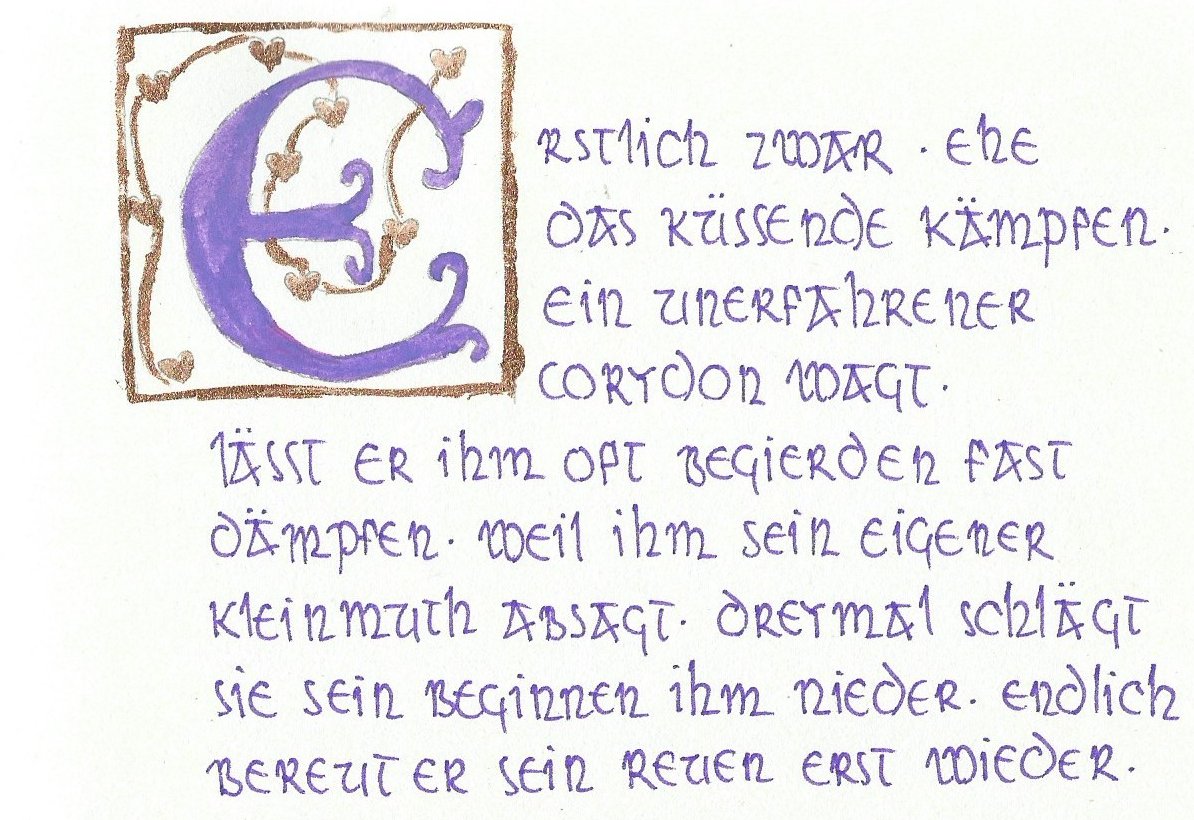 Erstlich zwar · ehe
das küssende kämpfen·
ein unerfahrener
corydon wagt·
lässt er ihm oft begierden fast
dämpfen· weil ihm sein eigener
kleinmuth absagt· dreymal schlägt
sie sein beginnen ihm nieder· endlich
bereut er sein reuen erst wieder·